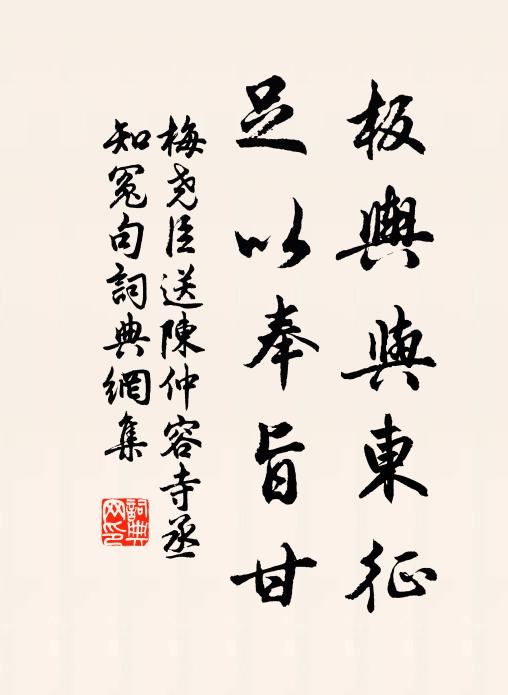 板輿與東征
足以奉旨甘
梅堯臣送陳仲容寺丞
知冤句詞典網集
詞典網印